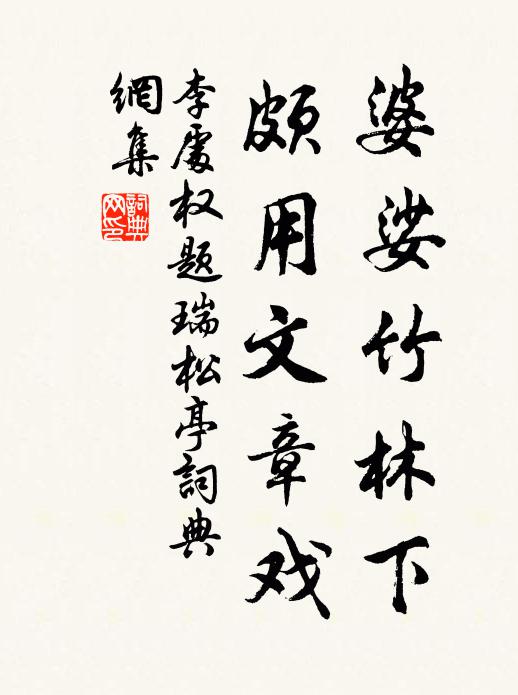 婆娑竹林下
颇用文章戏
李處权题瑞松亭詞典
網集
詞典
网印